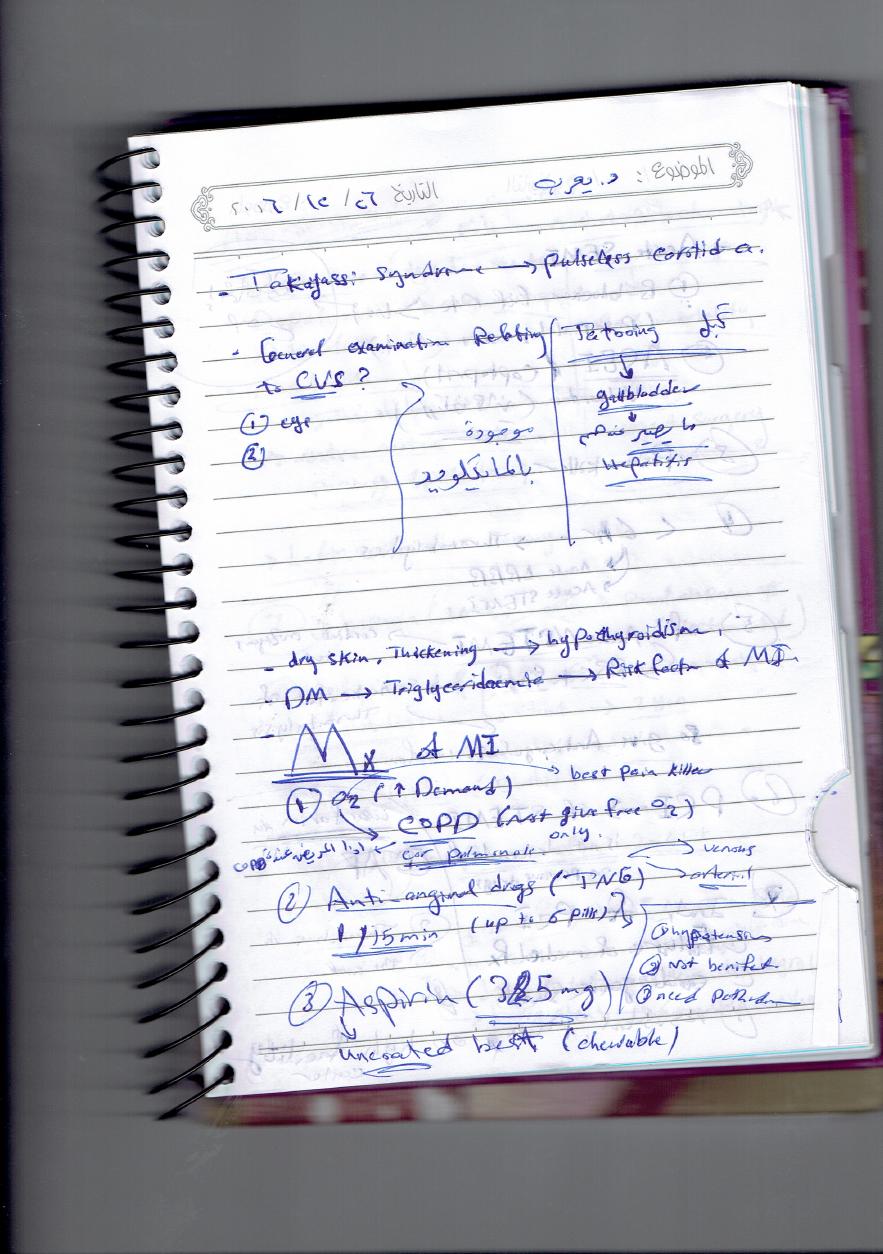 الموضوع : د. يعرب التاريخ ٢٦ / ١٢ / ٢٠٠٦
- Takayassi syndrome → pulseless corotid a.
- General examination Relating
to CVS ?
① eye
②
موجودة
Tatooing
gallbladder
ما يصير
Hepatitis
- dry skin, Thickening → hypothyroidism.
- DM → Triglyceridaemia → Risk factor of MI.
- Mx of MI
① O2 (↑ Demand) → best pain killer
COPD (not give free O2)
only.
cor pulmonale
② Anti-anginal drugs (TNG) → venous
→ arterial
1/15min (up to 6 pills)
① hypotension
② not benifet
③ need
③ Aspirin (325 mg)
uncoated best (chewable)